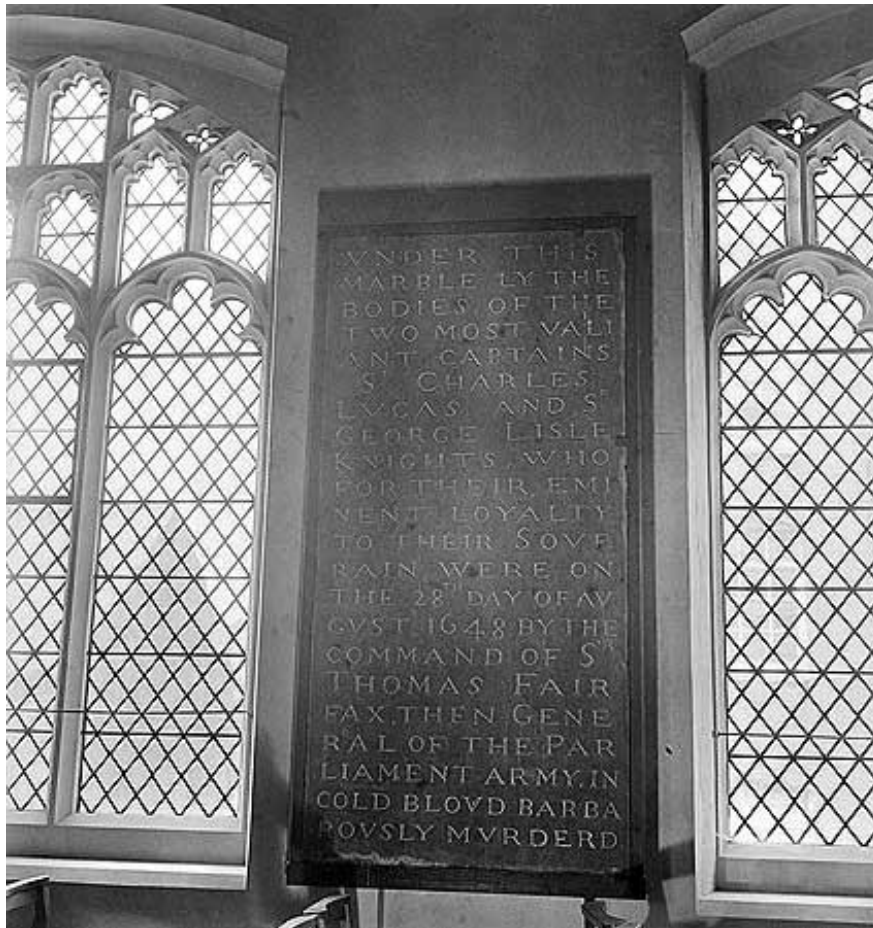 VNDER THIS
MARBLE LY THE
BODIES OF THE
TWO MOST VALI
ANT CAPTAINS
Sr CHARLES
LVCAS AND Sr
GEORGE LISLE
KNIGHTS, WHO
FOR THEIR EMI
NENT LOYALTY
TO THEIR SOVE
RAIN WERE ON
THE 28TH DAY OF AV
GVST 1648 BY THE
COMMAND OF Sr
THOMAS FAIR
FAX, THEN GENE
RAL OF THE PAR
LIAMENT ARMY, IN
COLD BLOVD BARBA
ROVSLY MVRDERD